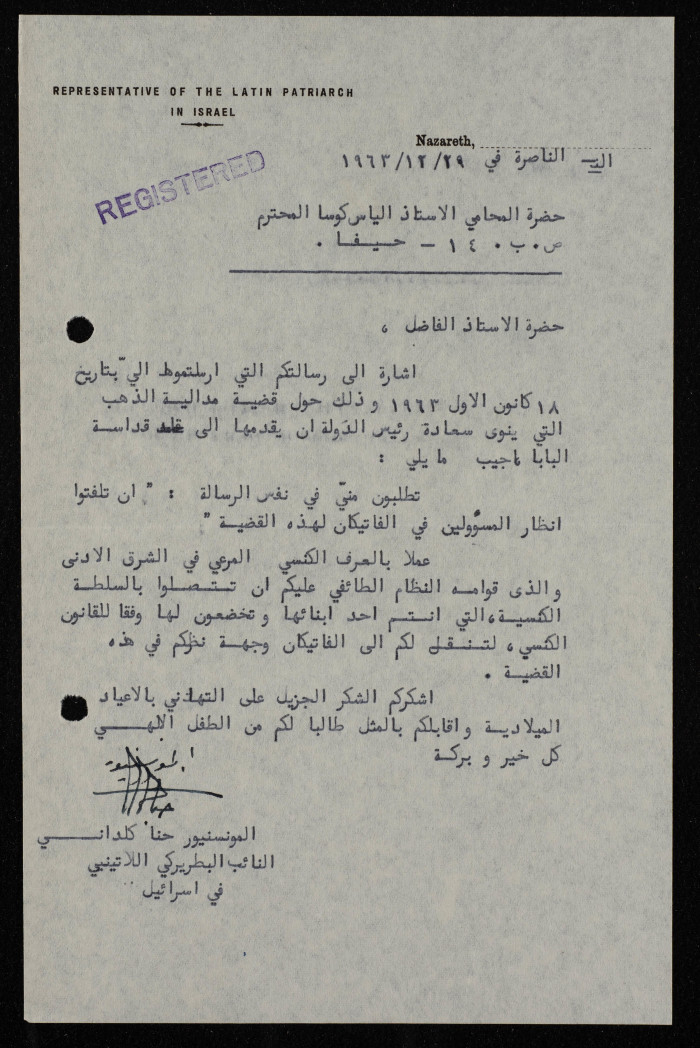 REPRESENTATIVE OF THE LATIN PATRIARCH
IN ISRAEL
Nazareth,
الناصرة في ١٩٦٣/١٢/٢٩
REGISTERED
حضرة المحامي الاستاذ الياس كوسا المحترم
ص٠ب٠ ١٤٠ – حيفا ٠
حضرة الاستاذ الفاضل ،
اشارة الى رسالتكم التي ارسلتموها اليّ بتاريخ
١٨ كانون الاول ١٩٦٣ و ذلك حول قضية مدالية الذهب
التي ينوى سعادة رئيس الدولة ان يقدمها الى قداسة
البابا ، اجيب ما يلي :
تطلبون منيّ في نفس الرسالة : " ان تلفتوا
انظار المسؤولين في الفاتيكان لهذه القضية "
عملا بالعرف الكنسي المرعي في الشرق الادنى
و الذى قوامه النظام الطائفي عليكم ان تتصلوا بالسلطة
الكنسية ، التي انتم احد ابنائها و تخضعون لها وفقا للقانون
الكنسي ، لتنقل لكم الى الفاتيكان وجهة نظركم في هذه
القضية ٠
اشكركم الشكر الجزيل على التهاني بالاعياد
الميلادية و اقابلكم بالمثل طالبا لكم من الطفل الالهي
كل خير و بركة
المونسنيور حنا كلداني
النائب البطريركي اللاتيني
في اسرائيل